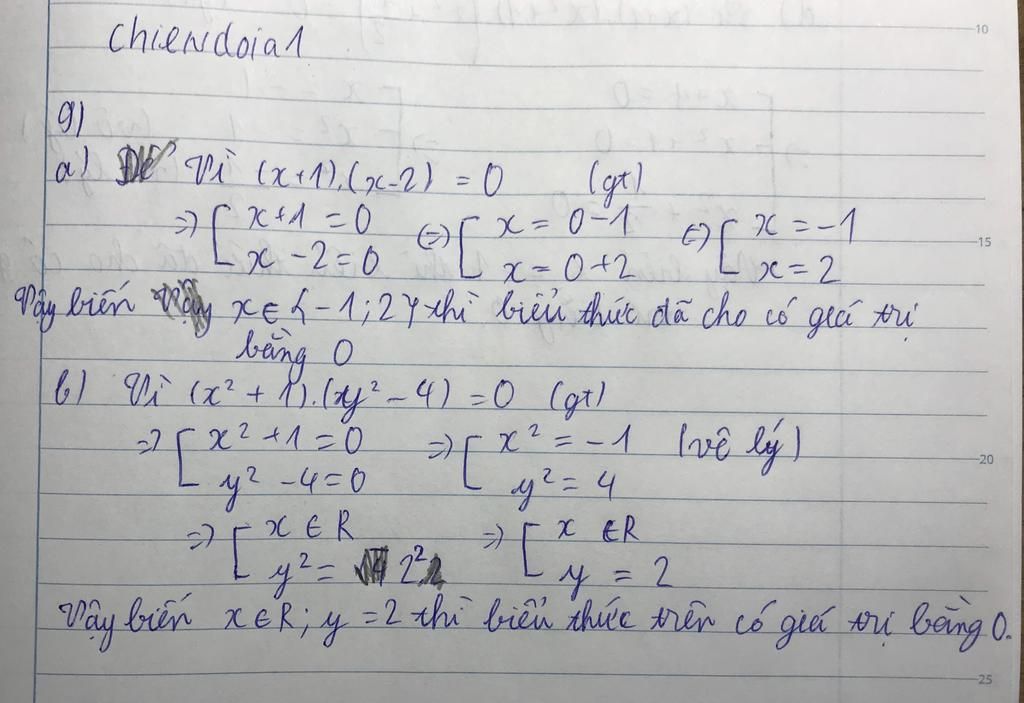 chiendoia1
10
g)
a) Vì (x+1).(x-2) = 0 (gt)
=> [ x+1 = 0 <=> [ x = 0-1 <=> [ x = -1
x - 2 = 0 x = 0+2 x = 2
15
Vậy biến x ∈ {-1;2} thì biểu thức đã cho có giá trị
bằng 0
b) Vì (x² + 1).(y² - 4) = 0 (gt)
=> [ x² + 1 = 0 => [ x² = -1 (vô lý)
y² - 4 = 0 y² = 4
20
=> [ x ∈ R => [ x ∈ R
y² = 2² y = 2
Vậy biến x ∈ R; y = 2 thì biểu thức trên có giá trị bằng 0.
25